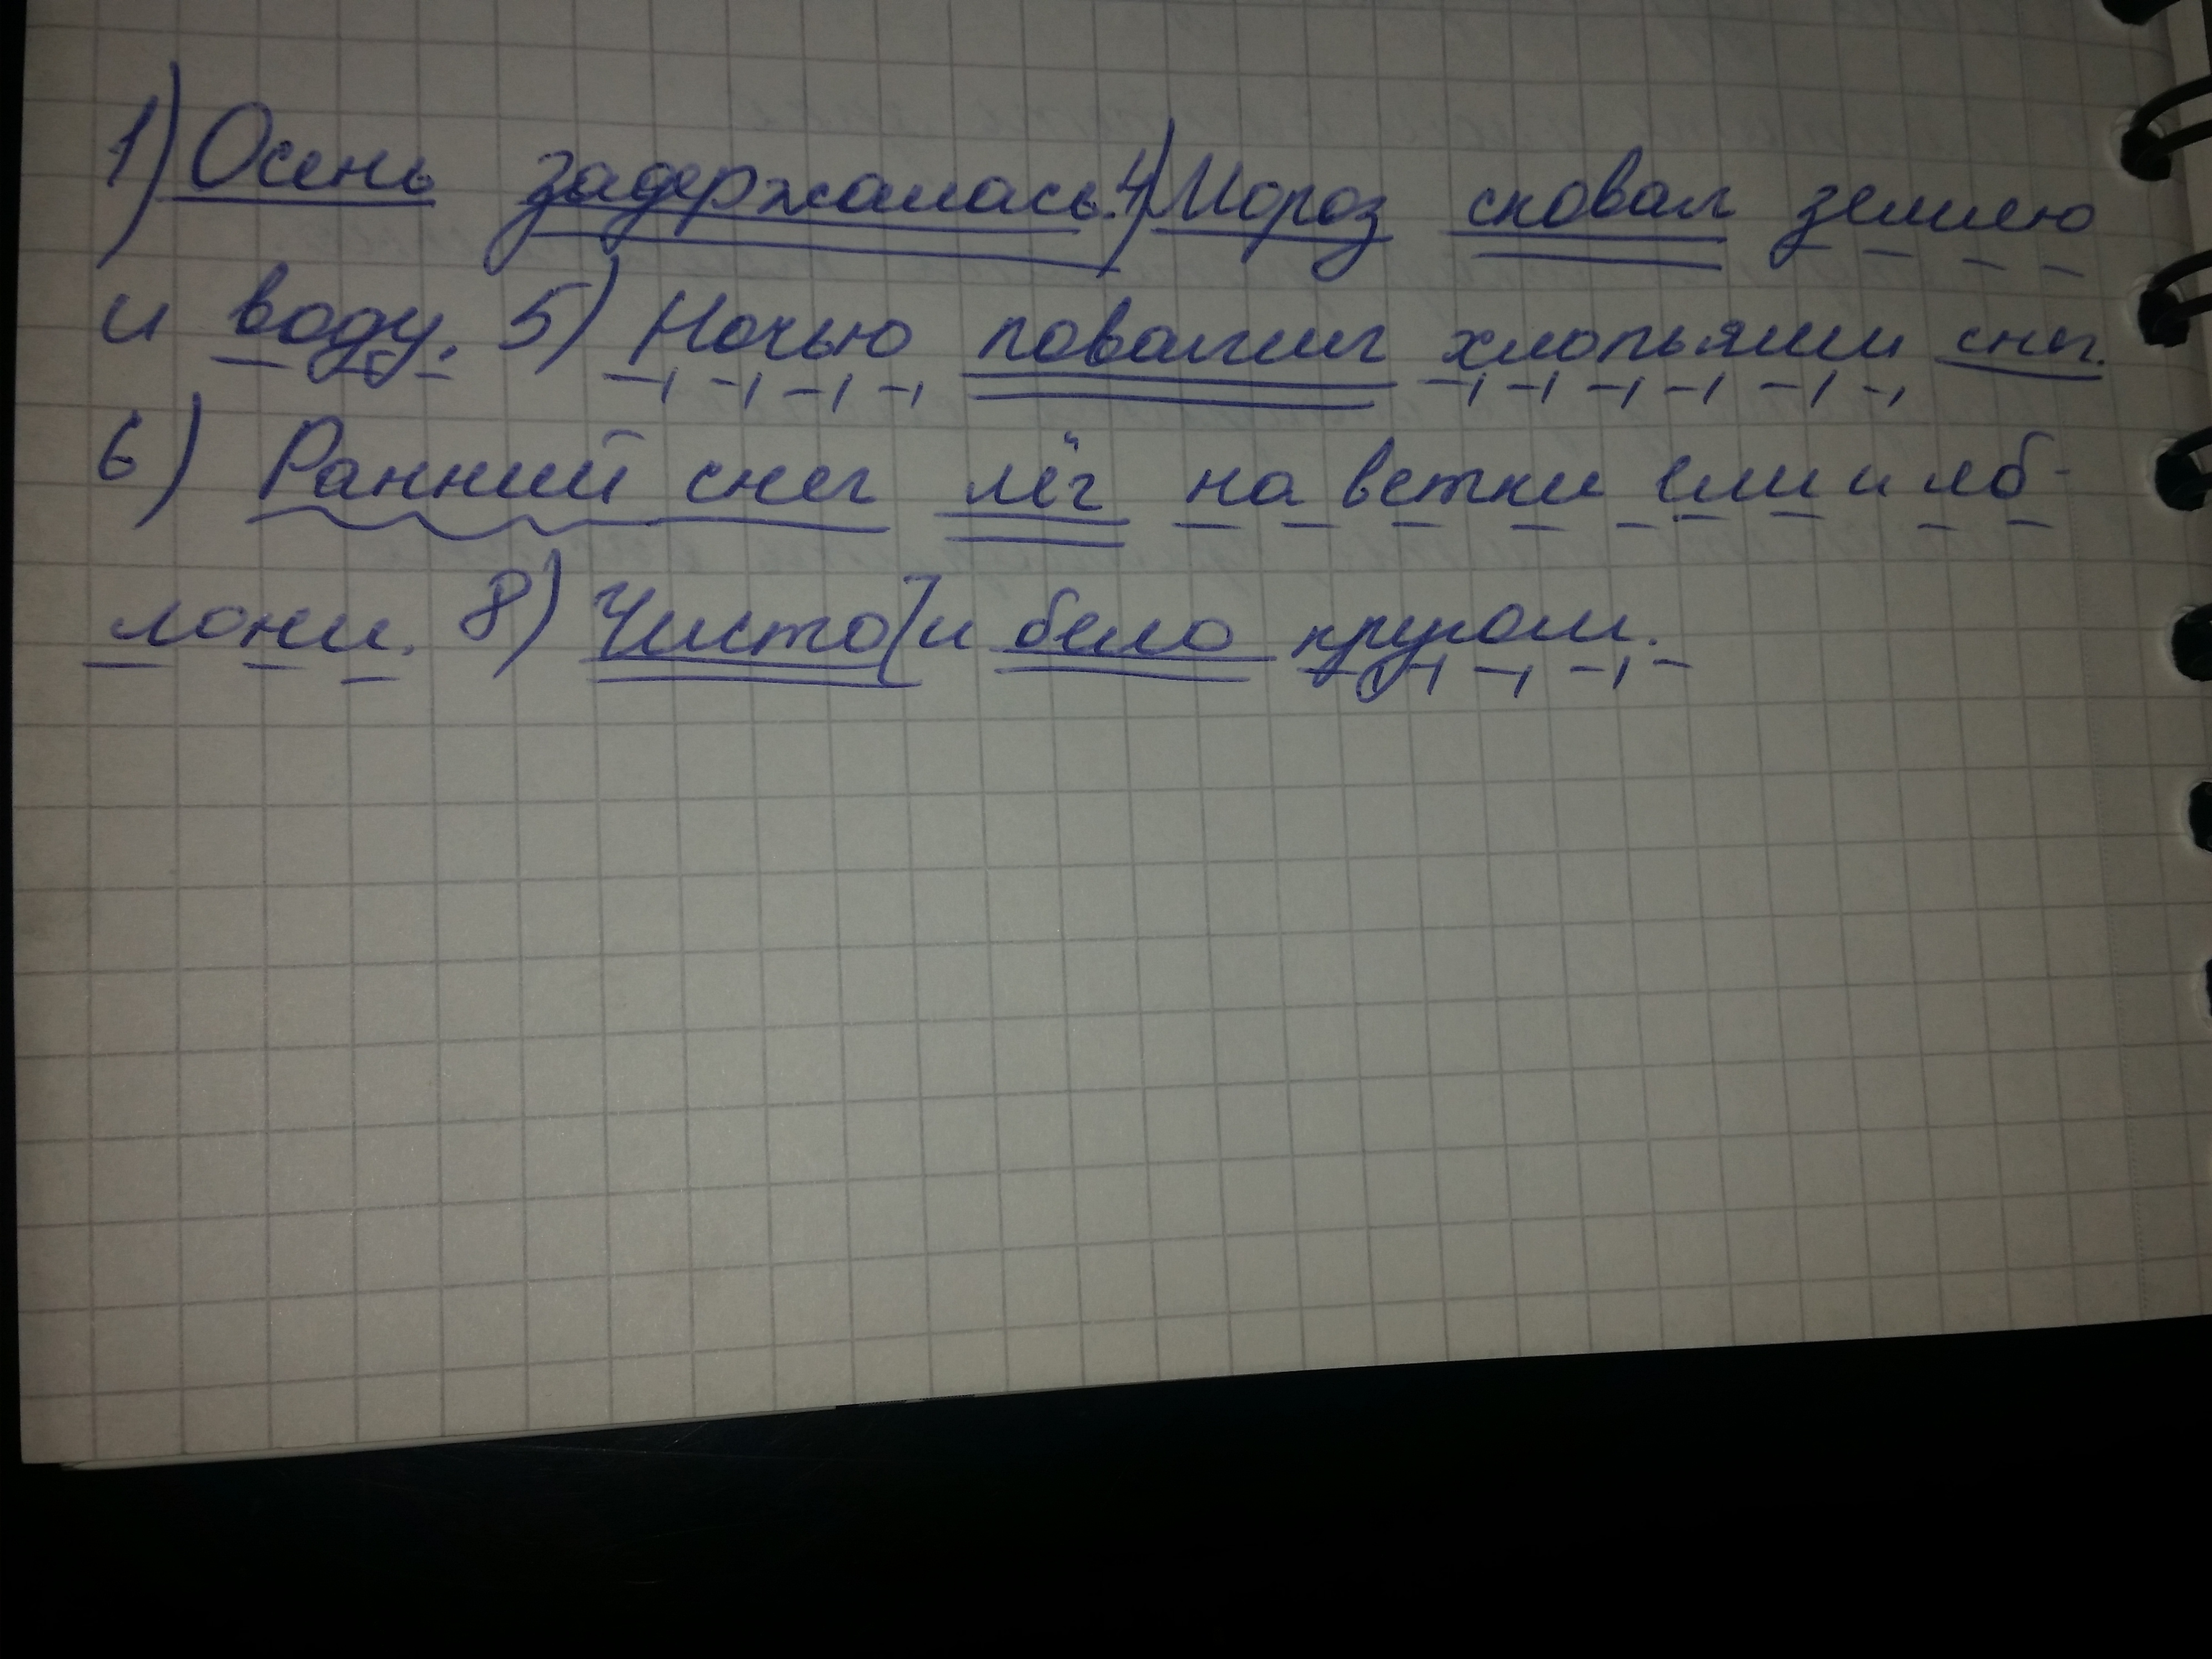 1) Осень задержалась. 4) Мороз сковал землю
и воду. 5) Ночью повалил хлопьями снег.
6) Ранний снег лёг на ветки ели и яб-
лони. 8) Чисто и бело кругом.